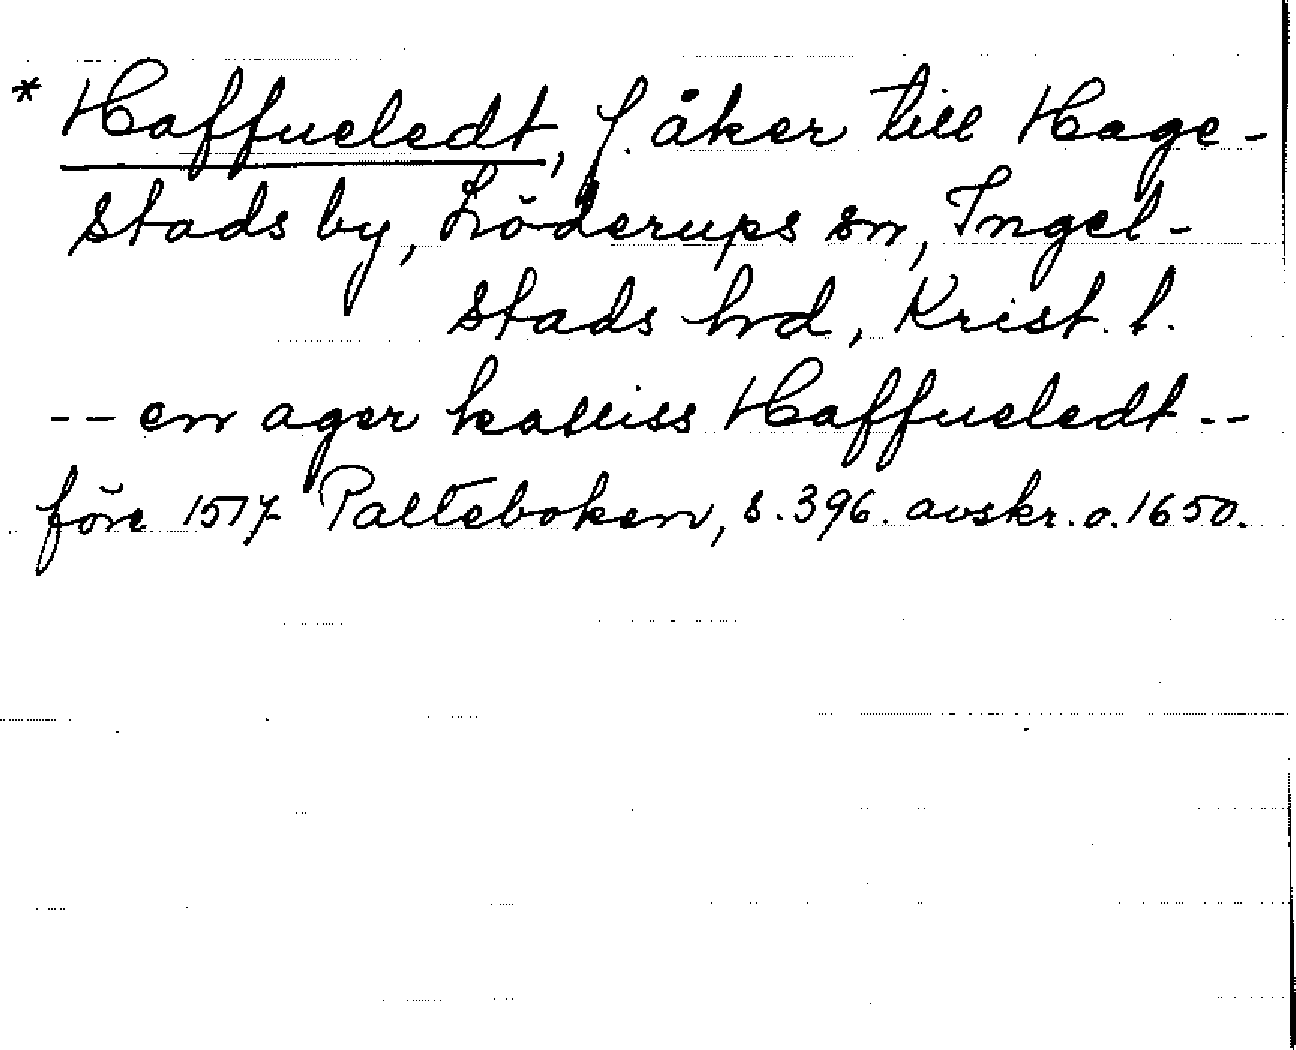 * Haffueledt, f. åker till Hage-
stads by, Löderups sn, Ingel-
stads hrd, Krist. l.
-- en ager kalliss Haffueledt --
före 1517 Palteboken, s. 396. avskr. o. 1650.